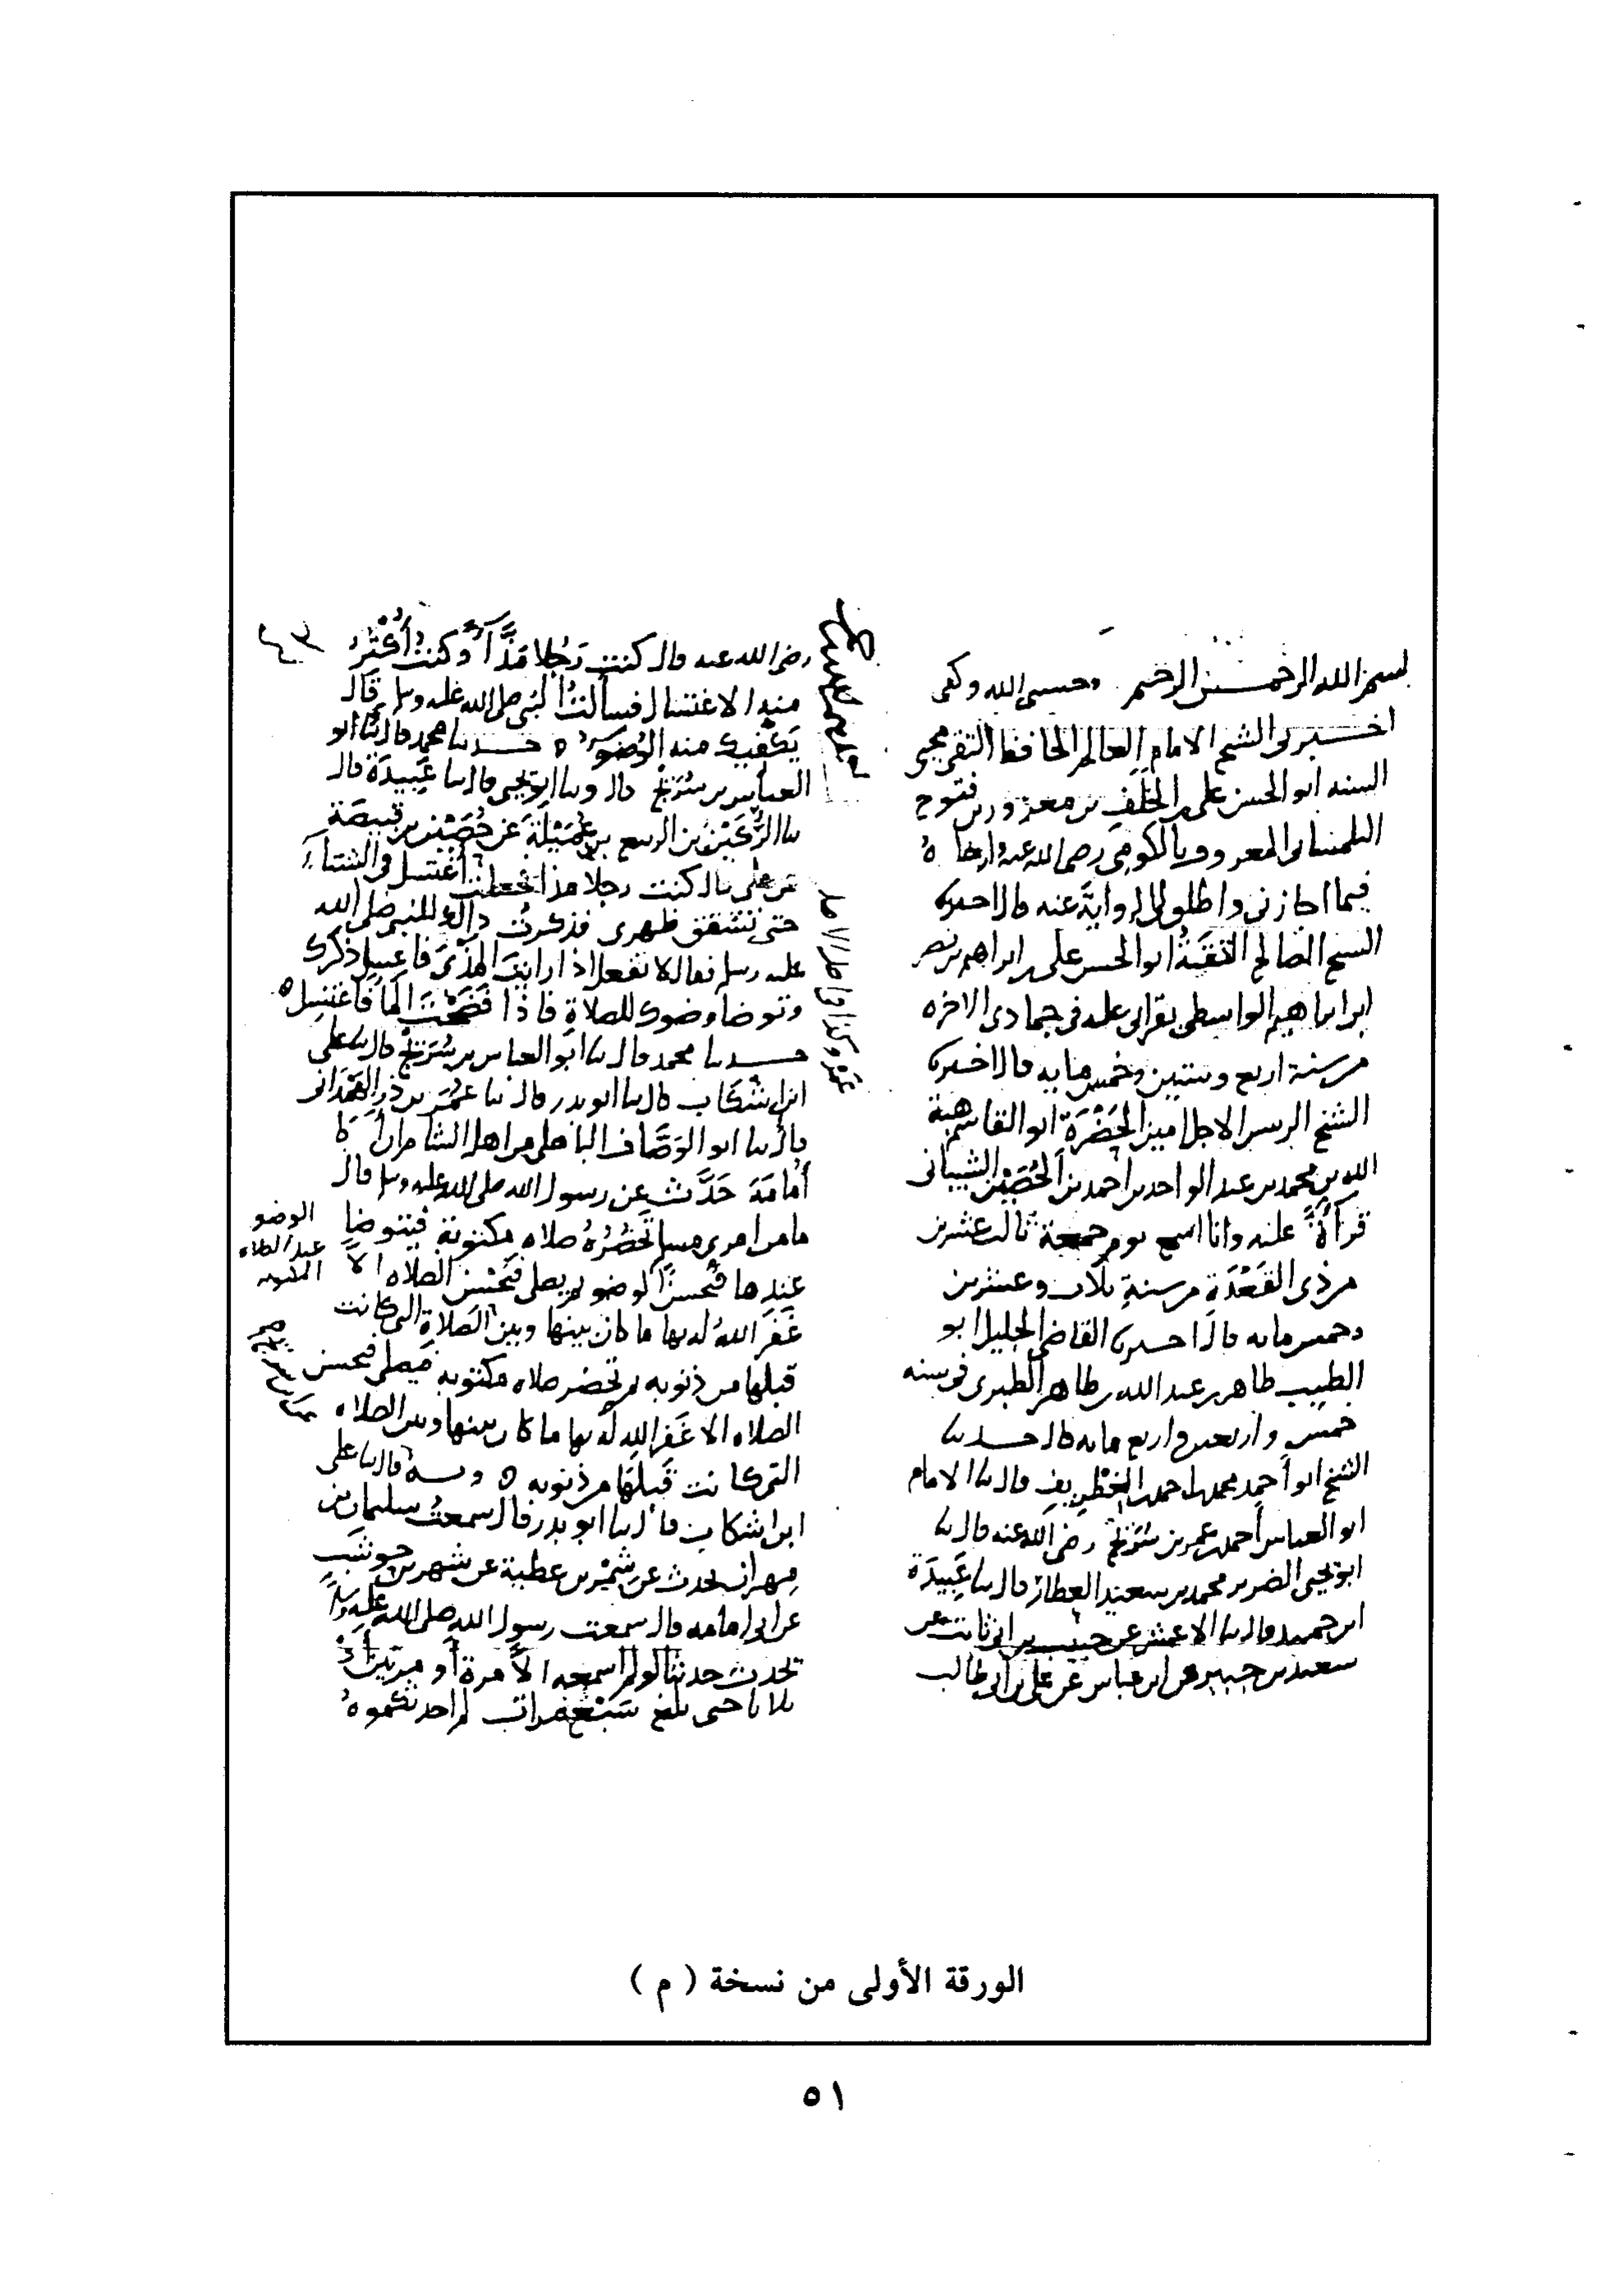 بسم الله الرحمن الرحيم وحسبي الله وكفى
اخبرنى الشيخ الامام العالم الحافظ التقى محيى
السنه ابو الحسن على بن الخلف بن معزوز بن فتوح
التلمسانى المعروف بالكومى رضى الله عنه وارضاه
فيما اجازنى واطلق لى الروايه عنه قال اخبرنا
الشيخ الصالح الثقة ابو الحسن على بن ابراهيم بن نصر
ابن ابراهيم الواسطى بقرائى عليه فى جمادى الاخره
من سنة اربع وستين وخمس مايه قال اخبرنا
الشيخ الرييس الاجل امين الحضرة ابو القاسم هبة
الله بن محمد بن عبد الواحد بن احمد بن الحصين الشيبانى
قرأةً عليه وانا اسمع يوم جمعة ثالث عشرين
من ذى القعدة من سنة ثلاث وعشرين
وخمس مايه قال اخبرنا القاضى الجليل ابو
الطيب طاهر بن عبد الله بن طاهر الطبرى فى سنه
خمس واربعين واربع مايه قال حدثنا
الشيخ ابو احمد محمد بن احمد بن الغطريف قال ثنا الامام
ابو العباس احمد بن عمر بن سُرَيْج رضى الله عنه قال ثنا
ابو يحيى الضرير محمد بن سعيد العطار قال ثنا عَبِيدَة
ابن حميد قال ثنا الاعمش عن حبيب بن ابى ثابت عن
سعيد بن جبير عن ابن عباس عن على بن ابى طالب
رضى الله عنه قال كنت رَجُلا مَذَّآءً وكنت أُكْثِرُ
منه الاغتسال فسألتُ النبى صلى الله عليه وسلم قَال
يَكْفيك منه الوُضوء ه حدثنا محمد قال ثنا ابو
العباس بن سُرَيْج قال وثنا ابو يحيى قال ثنا عَبِيدَة قال
ثنا الرُّكَيْن بن الربيع بن عُمَيْلَةَ عن حُصَيْن بن قبيصَة
عن على قال كنت رجلا مذا فجعلت أغتسل فى الشتآء
حتى تشقق ظهرى فذكرت ذالك للنبى صلى الله
عليه وسلم فقال لا تفعل اذا رايتَ المَذْىَ فاغسل ذكرك
وتوضا وضوك للصلاةِ فاذا فَضَخْتَ الما فاغتسل ه
حدثنا محمد قال ثنا ابو العباس بن سُرَيْج قال ثنا على
ابن اشكاب قال ثنا ابو بدر قال ثنا عُمَر بن ذر الهَمْدَانى
قال ثنا ابو الوَصَّاف الباهلى من اهل الشام ان ابا
أُمَامَةَ حَدَّث عن رسول الله صلى الله عليه وسلم قال
ما من امرى مسلم تَحْضُرُهُ صلاه مكتوبة فيتوضا
عندها فيُحسنُ الوضو ثم يصلى فَيُحْسِن الصلاه الا
غَفَرَ اللهُ له بها ما كان بينها وبين الصلاةِ التى كانت
قبلها من ذنوبه ثم تحضر صلاه مكتوبه فيصلى فيحسن
الصلاه الا غَفَر الله له بها ما كان بينها وبين الصلاه
التى كانت قَبلَهَا من ذنوبه ه وبه قال ثنا على
ابن اشكاب قال ثنا ابو بدر قال سمعتُ سليمان بن
مهران يحدث عن شِمْر بن عطية عن شهر بن حوشَبٍ
عن ابى امامه قال سمعت رسول الله صلى الله عليه وسلم
يحدث حديثا لو لم اسمعه الا مرة أو مرتين أو
ثلاثا حتى بلغ سَبْعَ مرات لم احدثكموهُ
الوضو
عند الصلاه
المكتوبه
الورقة الأولى من نسخة ( م )
٥١